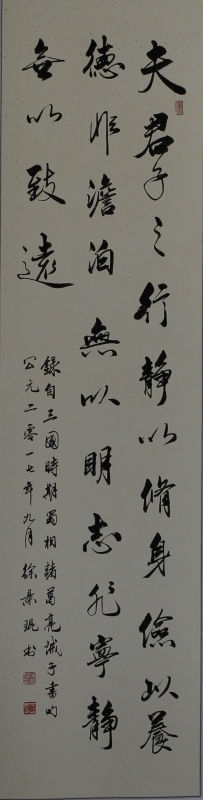 夫君子之行靜以脩身儉以養
德非澹泊無以明志非寧靜
無以致遠
錄自三國時期蜀相諸葛亮誡子書句
公元二零一七年九月徐景琨書